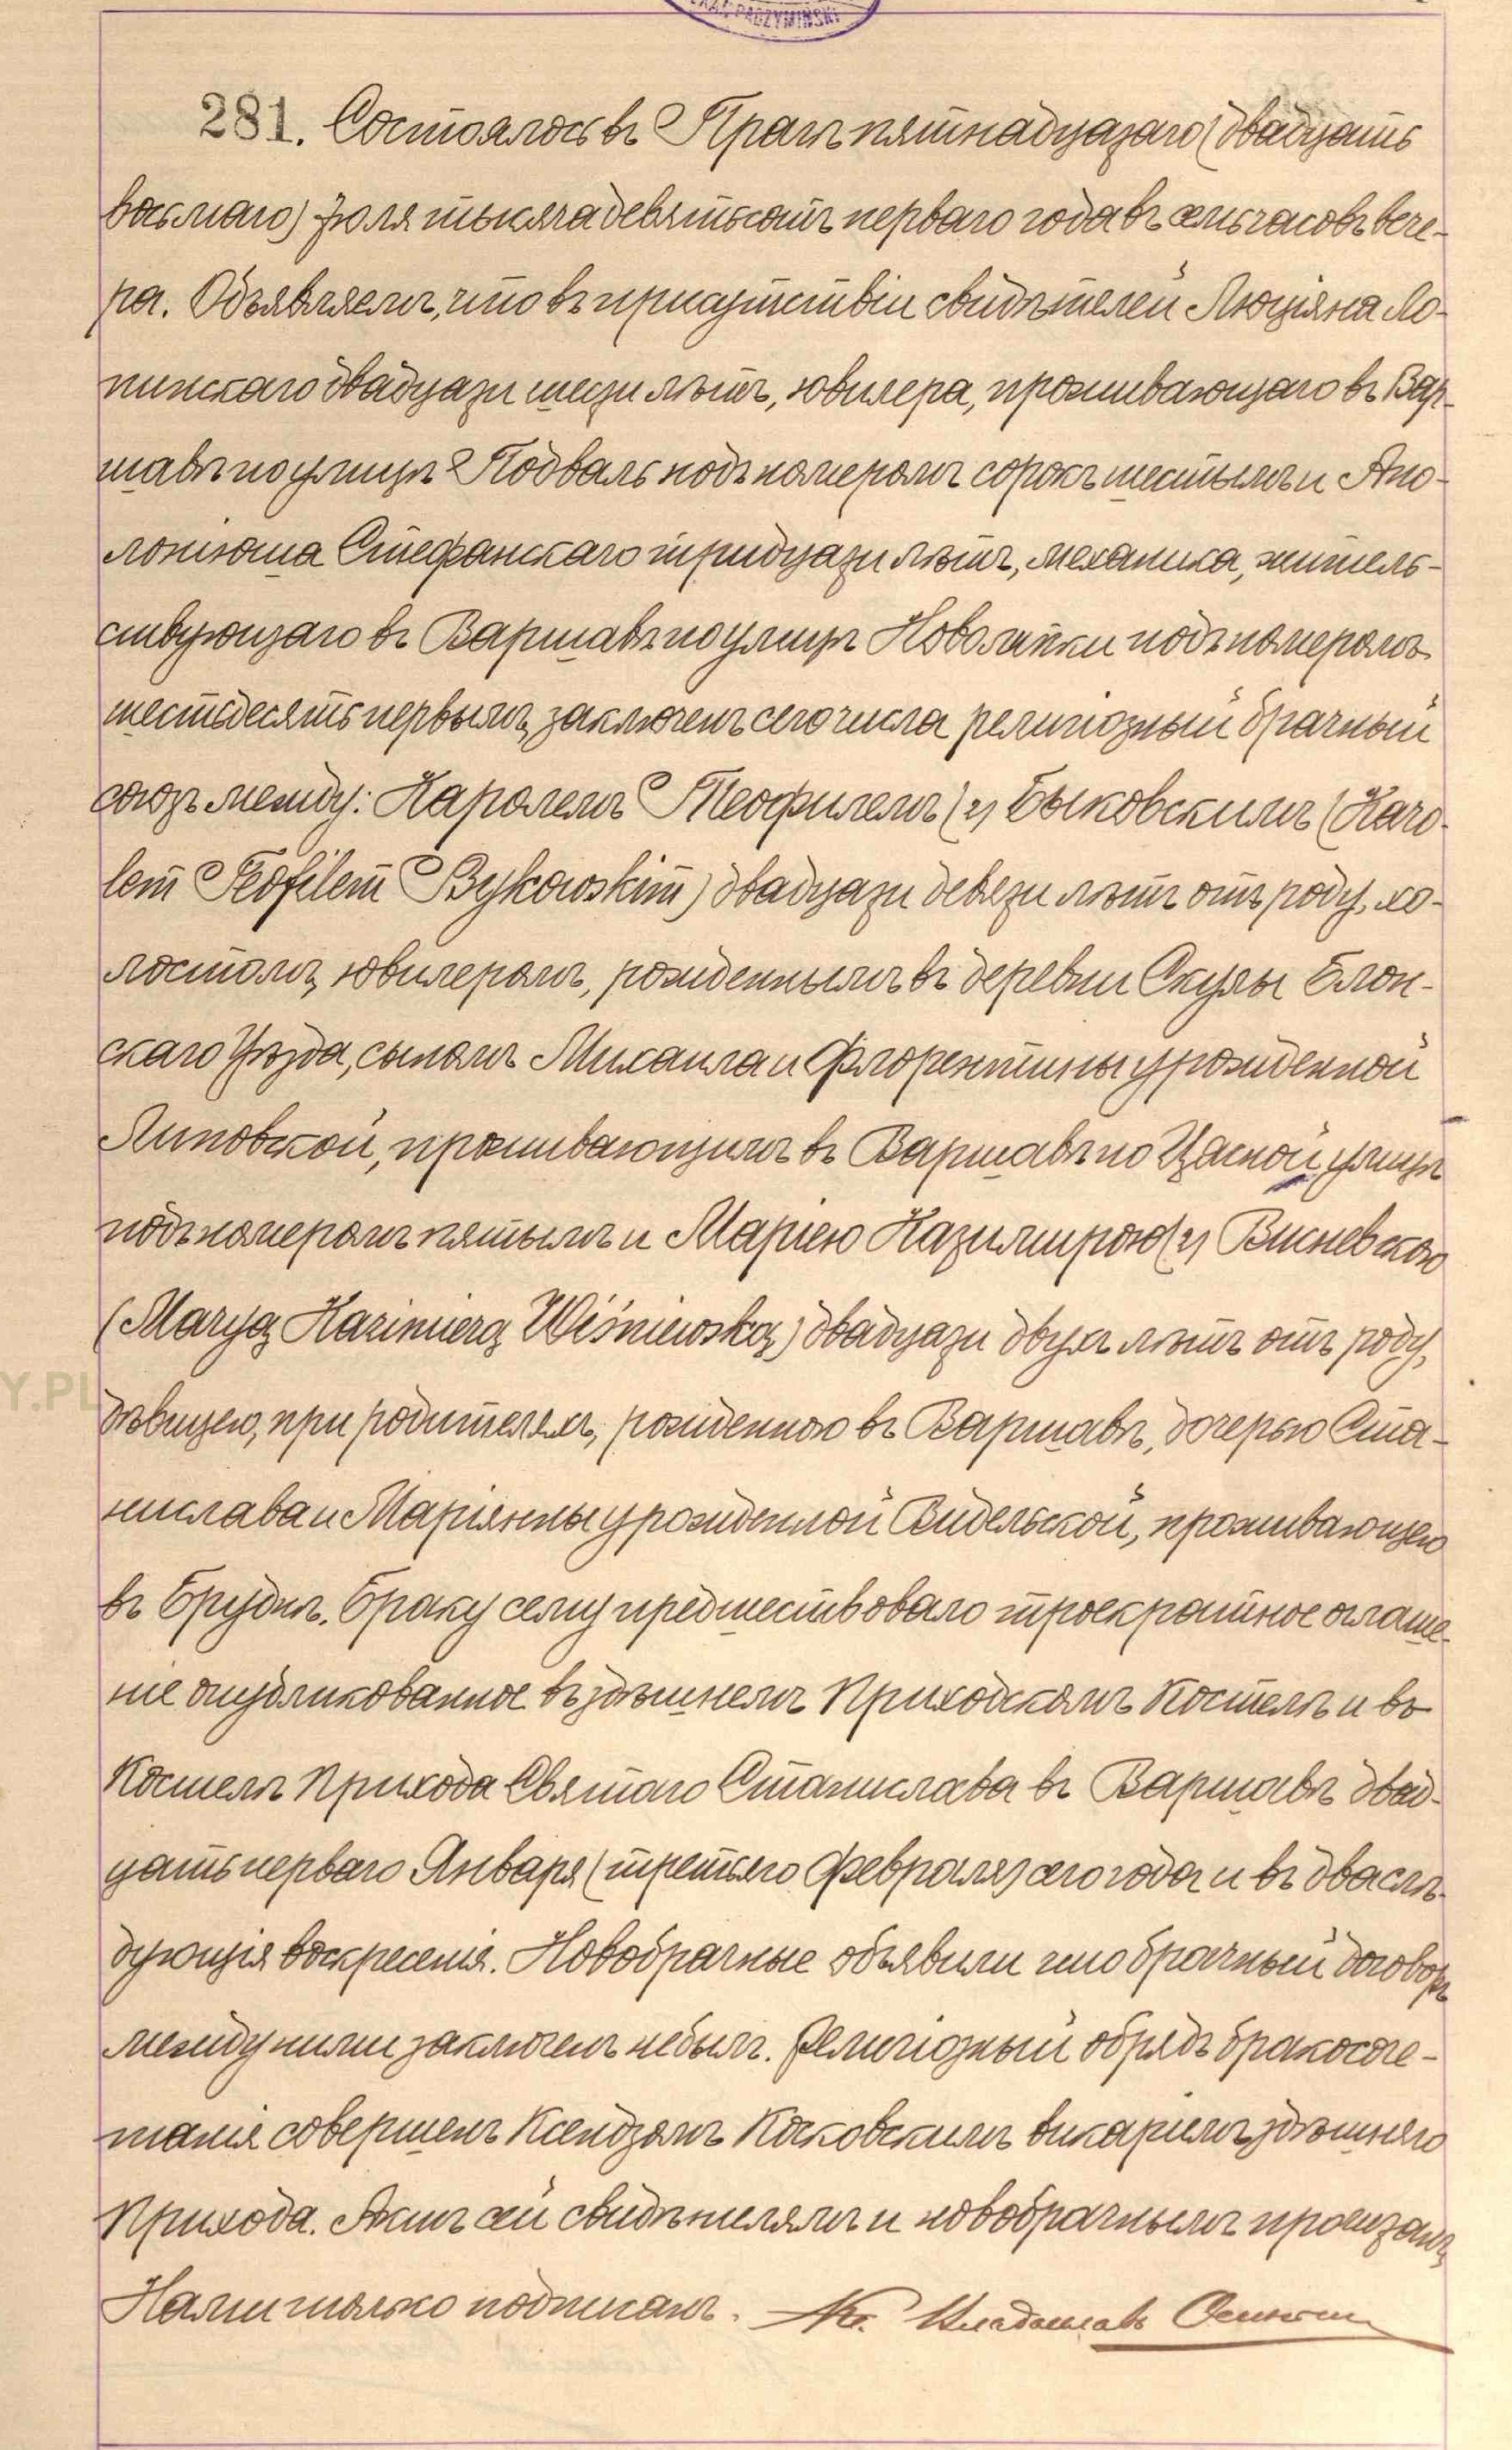 KAT. RADZYMIŃSKI
281. Состоялось въ Прагѣ пятнадцатаго (двадцать
восьмаго) Іюля тысяча девятьсотъ перваго года въ семь часовъ вече-
ра. Объявляемъ, что въ присутствіи свидѣтелей Люціяна Ло-
пинскаго двадцати шести лѣтъ, ювилера, проживающаго въ Вар-
шавѣ по улицѣ Подваль подъ номеромъ сорокъ шестымъ и Апо-
лоніюша Стефанскаго тридцати лѣтъ, механика, житель-
ствующаго въ Варшавѣ по улицѣ Новолипки подъ номеромъ
шестьдесятъ первымъ, заключенъ сего числа религіозный брачный
союзъ между: Каролемъ Теофилемъ (2) Быковскимъ (Karo-
lem Teofilem Bykowskim) двадцати девяти лѣтъ отъ роду, хо-
лостомъ, ювилеромъ, рожденнымъ въ деревни Скулы Блон-
скаго Уѣзда, сыномъ Михаила и Флорентины урожденной
Липовской, проживающимъ въ Варшавѣ по Цасной улицѣ
подъ номеромъ пятымъ и Маріею Казимирою (2) Висневскою
(Maryą Kazimierą Wiśniewską) двадцати двухъ лѣтъ отъ роду,
дѣвицею, при родителяхъ, рожденною въ Варшавѣ, дочерью Ста-
нислава и Маріянны урожденной Видельской, проживающею
въ Бруднѣ. Браку сему предшествовало троекратное оглаше-
ніе опубликованное въ здѣшнемъ Приходскомъ Костелѣ и въ
Костелѣ Прихода Святаго Станислава въ Варшавѣ двад-
цать перваго Января (третьяго Февраля) сего года и въ два слѣ-
дующія воскресенія. Новобрачные объявили что брачный договоръ
между ними заключенъ небылъ. Религіозный обрядъ бракосоче-
танія совершенъ Ксендзомъ Косковскимъ викаріемъ здѣшняго
Прихода. Актъ сей свидѣтелямъ и новобрачнымъ прочитанъ,
Нами только подписанъ. Кс. Владыславъ